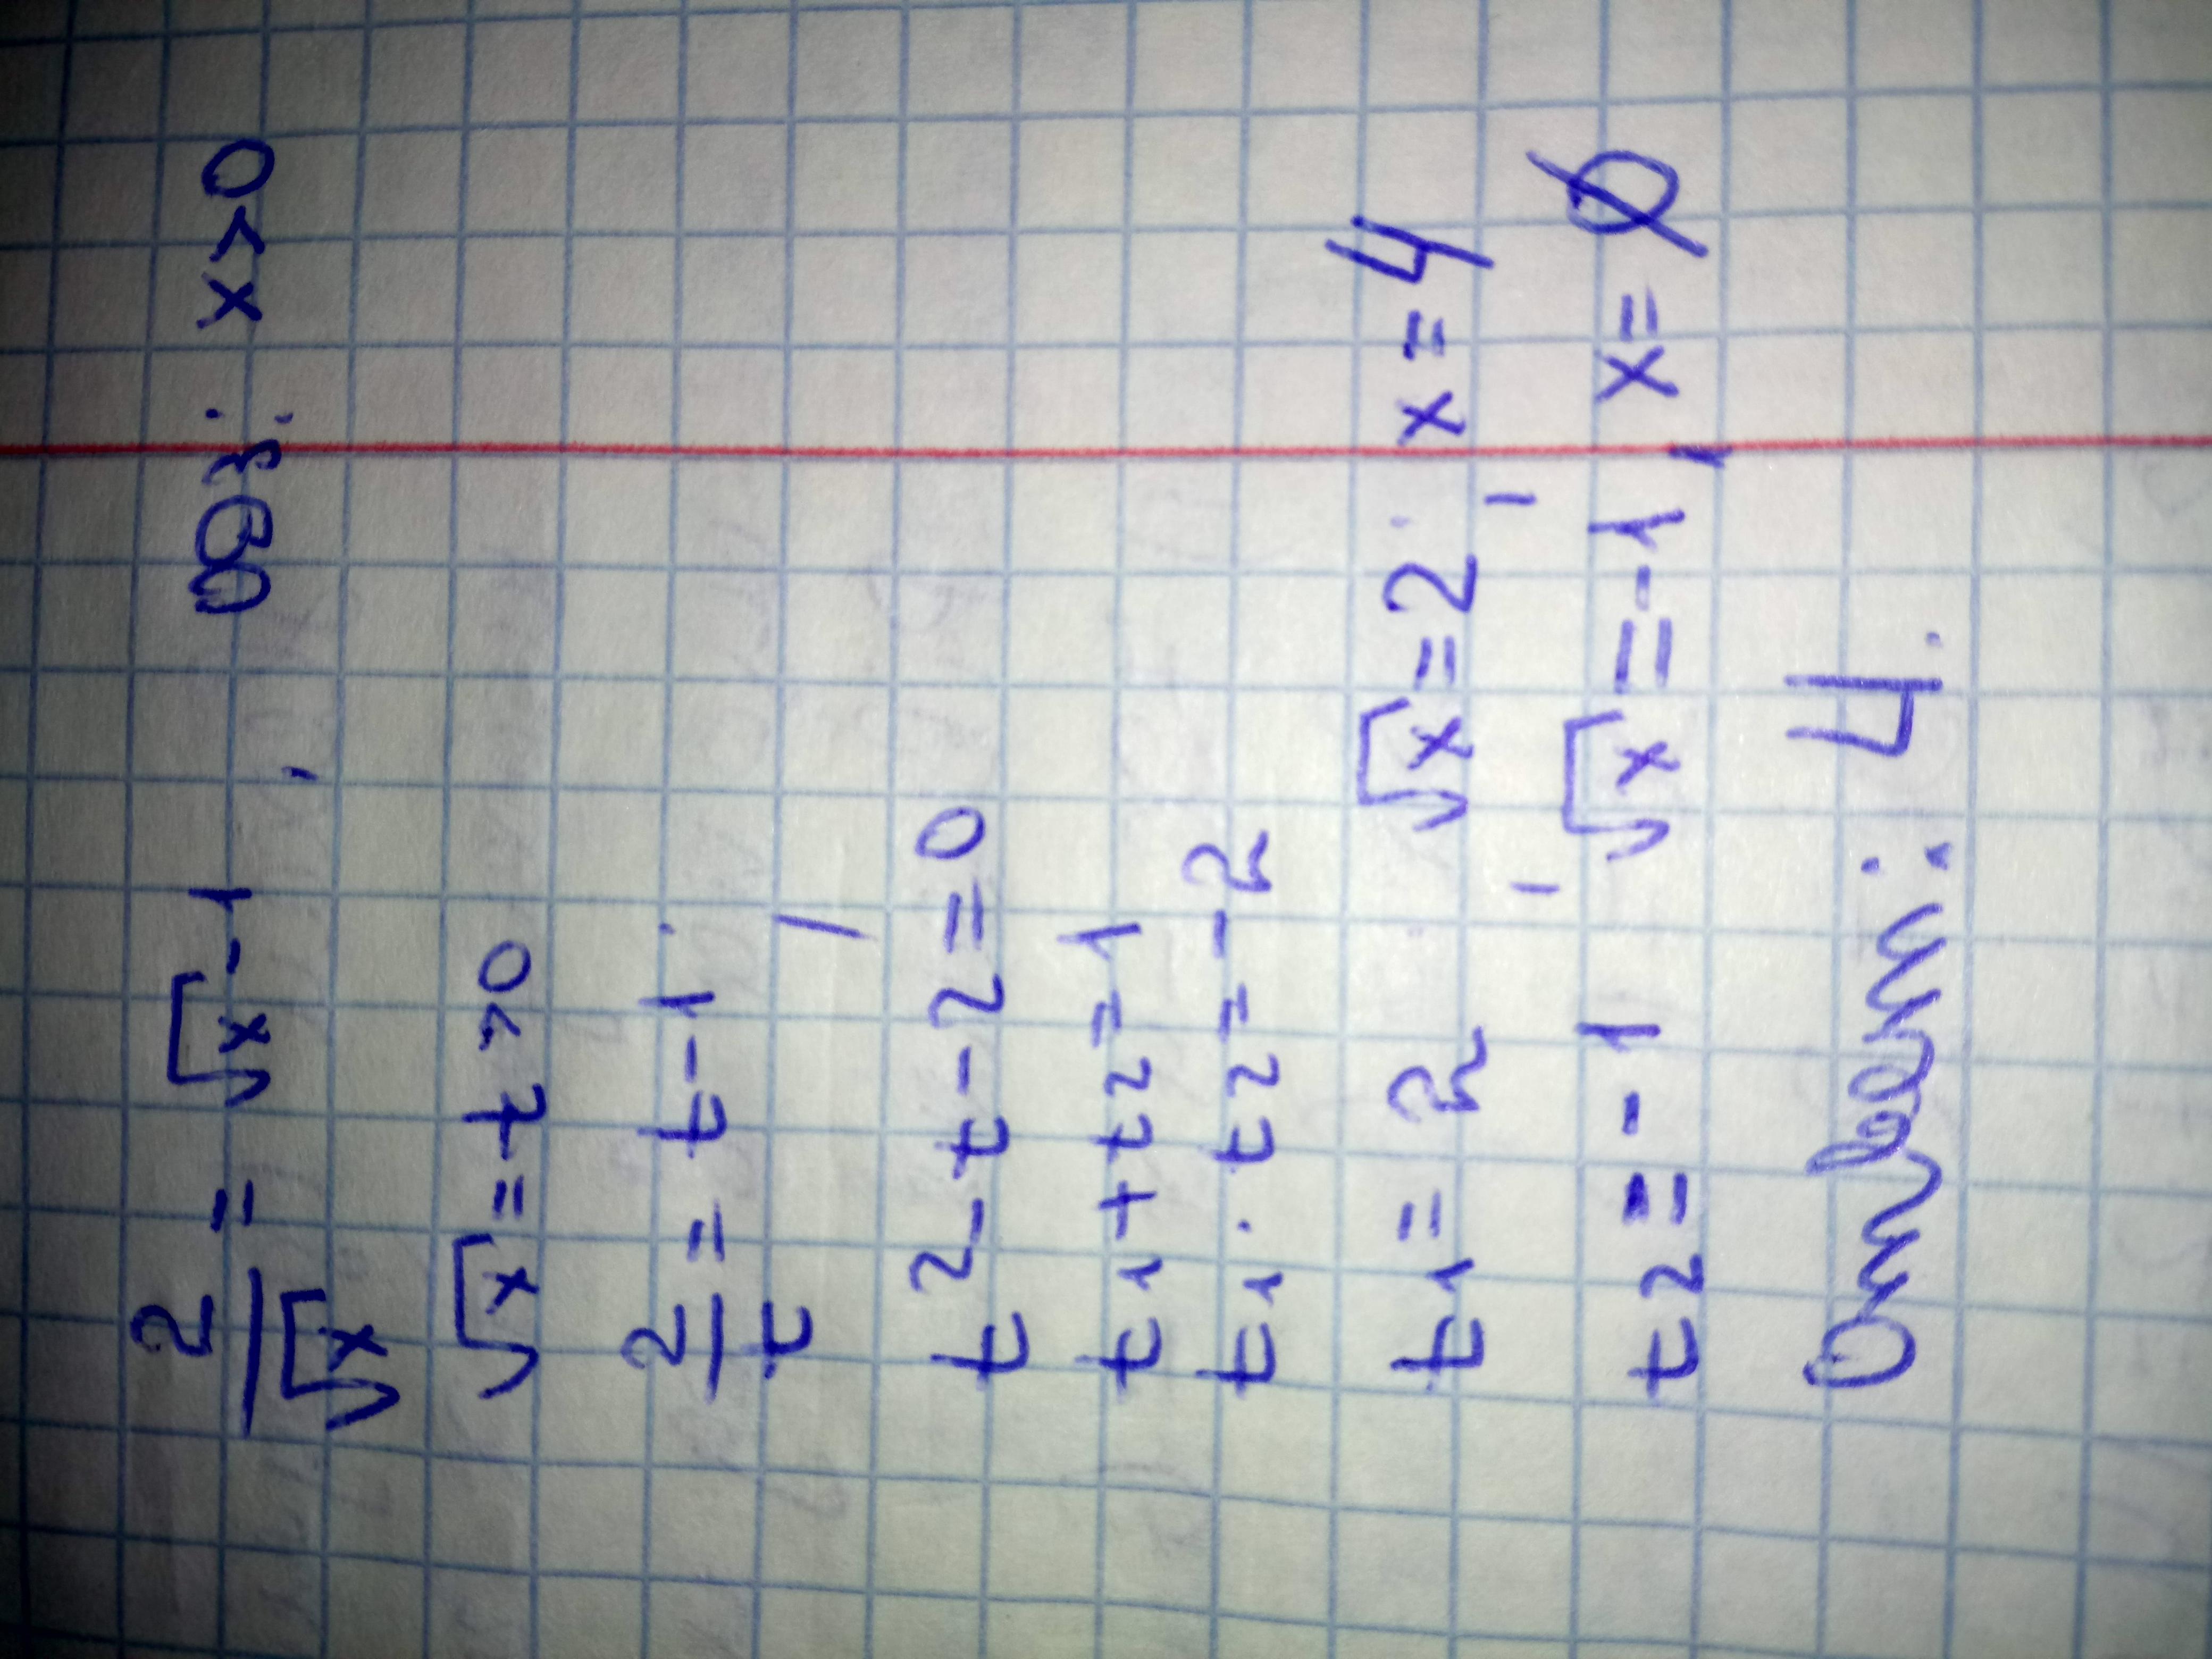 2/√x = √x - 1, ОДЗ: x > 0
√x = t > 0
2/t = t - 1,
t² - t - 2 = 0
t₁ + t₂ = 1
t₁ · t₂ = -2
t₁ = 2, √x = 2, x = 4
t₂ = -1 √x = -1, x = ∅
Ответ: 4.